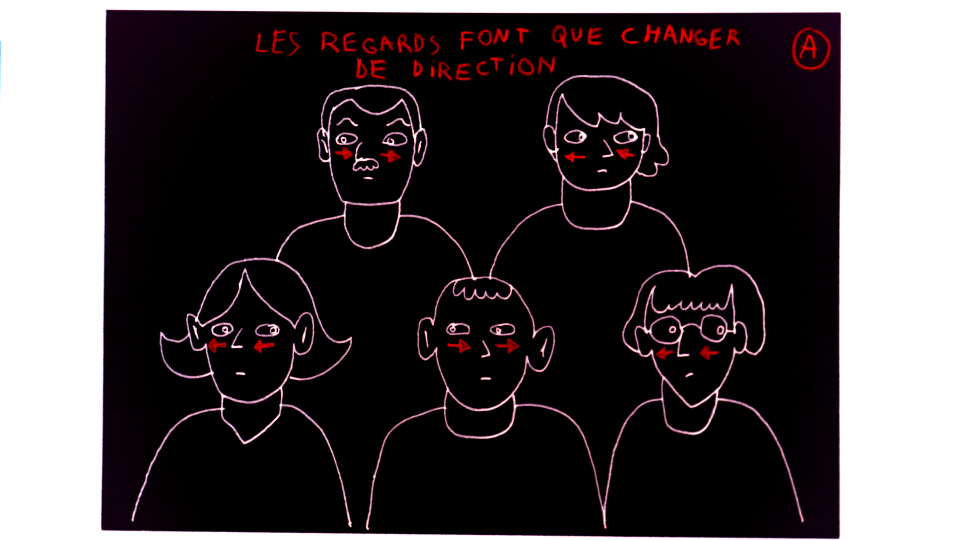 LES REGARDS FONT QUE CHANGER
DE DIRECTION
A